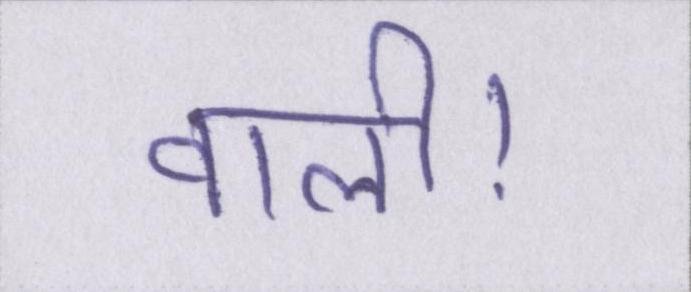 वाली!